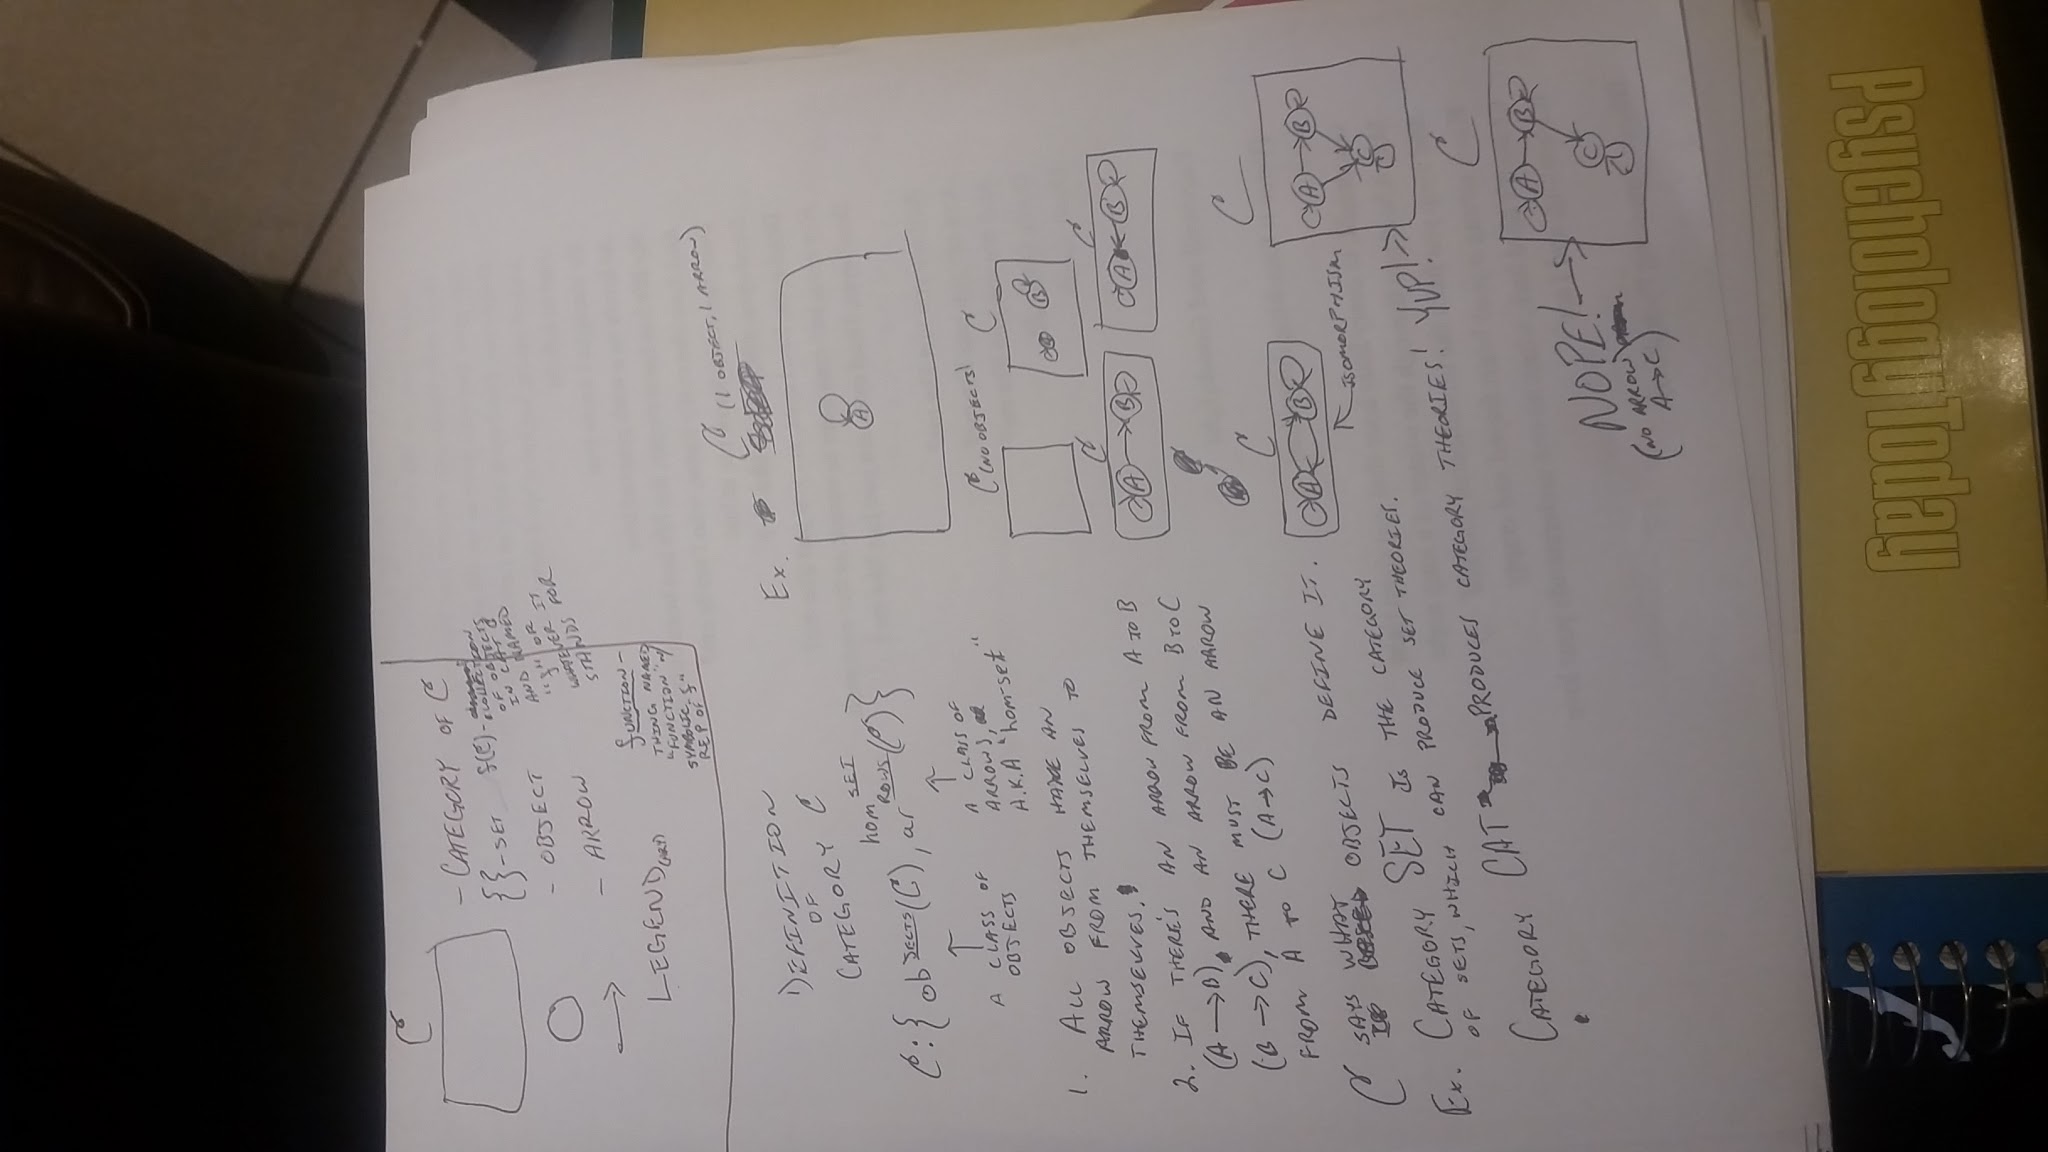 C
- CATEGORY OF C
{ } - SET
f(C) - COLLECTION
OF OBJECTS
IN CAT C
AND NAMED
"f" OR
WHATEVER IT
STANDS FOR
- OBJECT
- ARROW
LEGEND (ARY)
fUNCTION -
THING NAMED
"FUNCTION" W/
SYMBOLIC
REP OF f"
DEFINITION
OF
CATEGORY C
hom SET
C : { obJECTS (C), arROWS (C) }
A CLASS OF
OBJECTS
A CLASS OF
ARROWS,
A.K.A "hom-set"
1. ALL OBJECTS HAVE AN
ARROW FROM THEMSELVES TO
THEMSELVES.
2. IF THERE'S AN ARROW FROM A TO B
(A → B), AND AN ARROW FROM B TO C
(B → C), THERE MUST BE AN ARROW
FROM A TO C (A → C)
C SAYS WHAT OBJECTS DEFINE IT.
Ex. CATEGORY SET IS THE CATEGORY
OF SETS, WHICH CAN PRODUCE SET THEORIES.
CATEGORY CAT PRODUCES CATEGORY THEORIES!
Ex. C (1 OBJECT, 1 ARROW)
A
C (NO OBJECTS)
C
A B
C
A B
C
A B
C
A B
ISOMORPHISM
C
A B
C
YUP!
C
A B
C
NOPE!
(NO ARROW
A→C)
Psychology Today